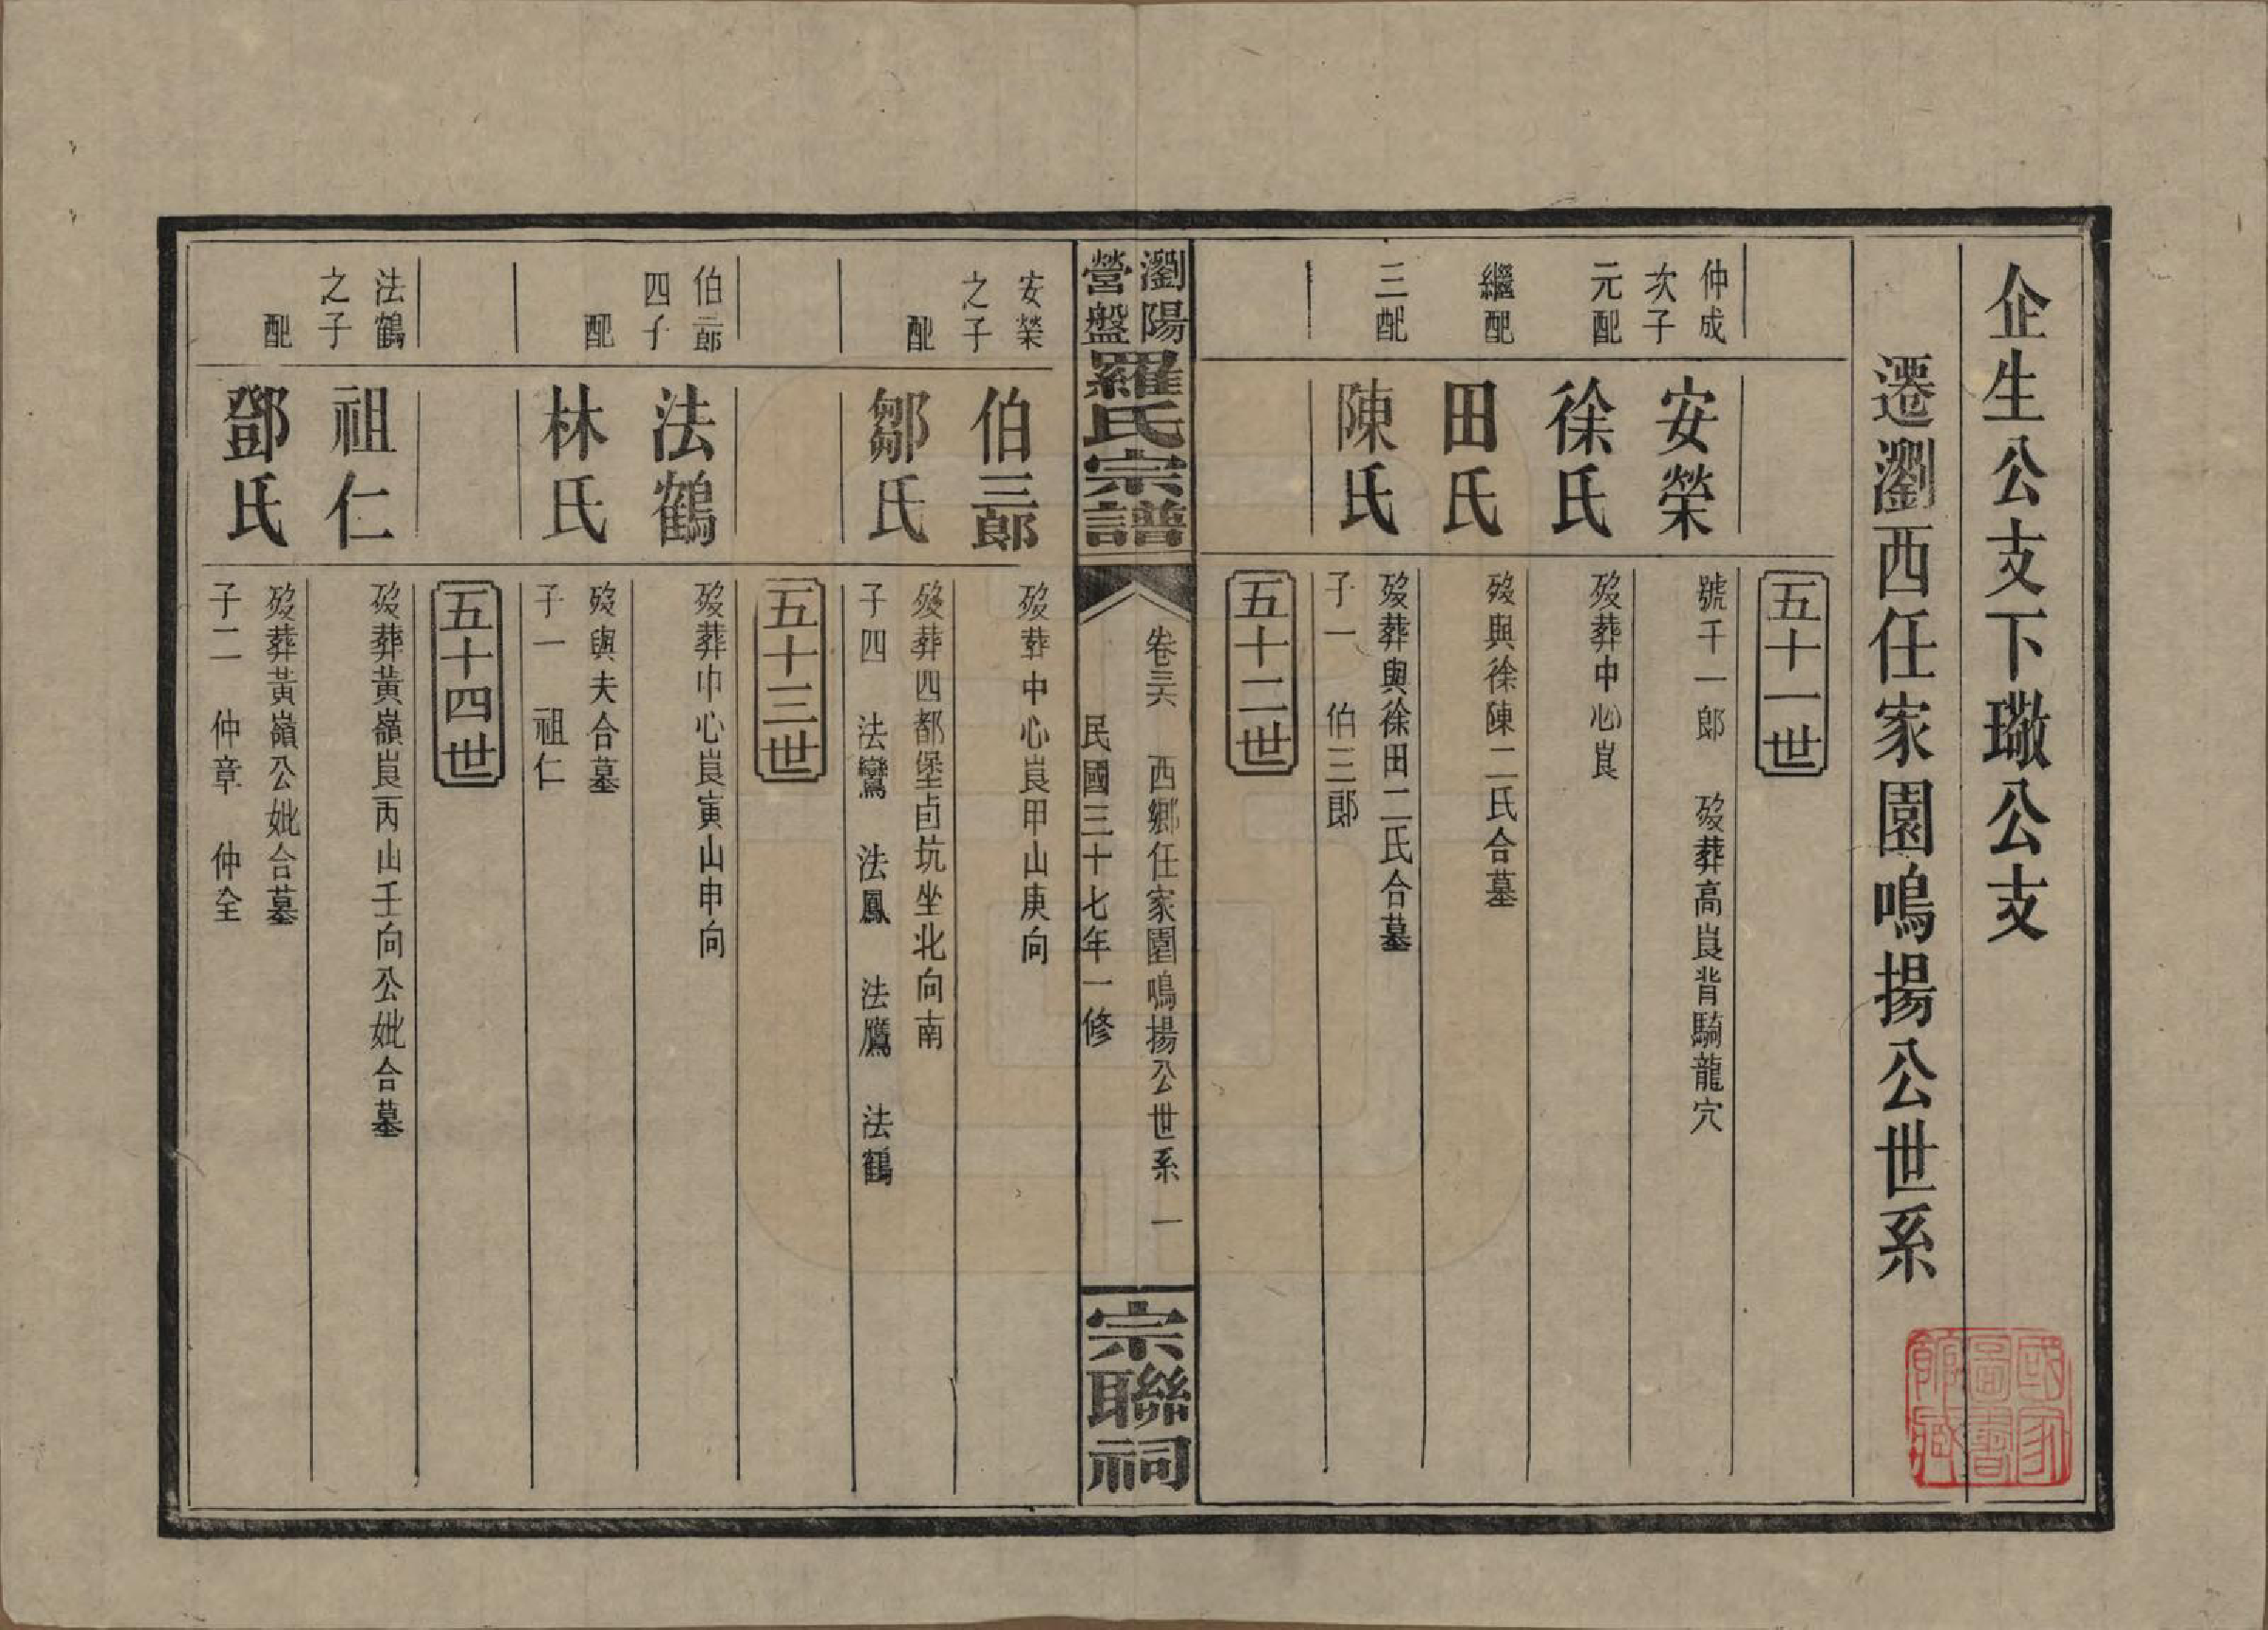 企生公支下璥公支
遷瀏西任家園鳴揚公世系
五十一世
仲成次子
安榮
號千一郎 歿葬高崀背騎龍穴
元配
徐氏
歿葬中心崀
繼配
田氏
歿與徐陳二氏合墓
三配
陳氏
歿葬與徐田二氏合墓
子一 伯三郎
五十二世
瀏陽營盤羅氏宗譜
卷三六 西鄉任家園鳴揚公世系 一
民國三十七年一修
宗聯祠
安榮之子
伯三郎
歿葬中心崀甲山庚向
配
鄒氏
歿葬四都堡卣坑坐北向南
子四 法鸞 法鳳 法鷹 法鶴
五十三世
伯三郎四子
法鶴
歿葬中心崀寅山申向
配
林氏
歿與夫合墓
子一 祖仁
五十四世
法鶴之子
祖仁
歿葬黃嶺崀丙山壬向公妣合墓
配
鄧氏
歿葬黃嶺公妣合墓
子二 仲章 仲全
國家圖書館藏